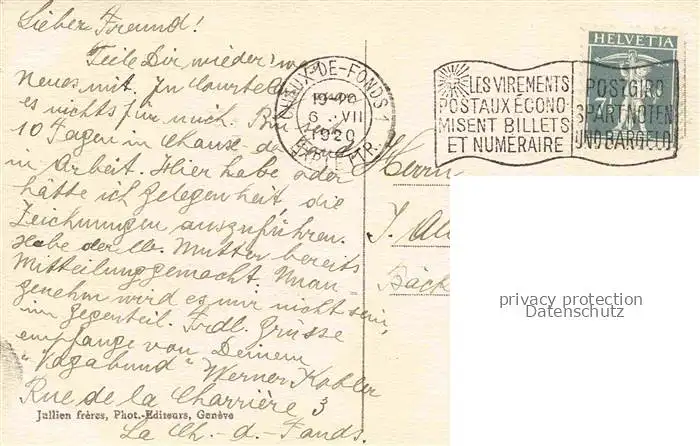 Lieber Freund!
Teile Dir wieder
Neues mit. In
es nichts für mich. Bin
10 Tagen in Chaux-de
in Arbeit. Hier habe oder
hätte ich Gelegenheit, die
Zeichnungen auszuführen.
Habe der lb. Mutter bereits
Mitteilung gemacht. Unan-
genehm wird es mir nicht sein,
im Gegenteil. Frdl. Grüsse
empfange von Deinem
"Vagabund" Werner Kobler
Rue de la Charrière 3
La Ch.-d.-Fonds.
Jullien frères, Phot.-Editeurs, Genève
CHAUX-DE-FONDS 1
6. VII
1929
EXP. LETTR.
LES VIREMENTS
POSTAUX ÉCONO-
MISENT BILLETS
ET NUMERAIRE
POSTGIRO
SPART NOTEN
UND BARGELD
HELVETIA
7½
Herrn
J.
Bäck
privacy protection
Datenschutz